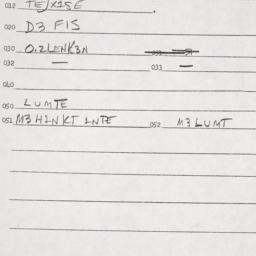 012 TEJX15E
020 D3 FIS
030 O.2LENK3N
032 — 033 —
040
050 LUMTE
051 M3H2NKT 2NTE 052 M3LUMT